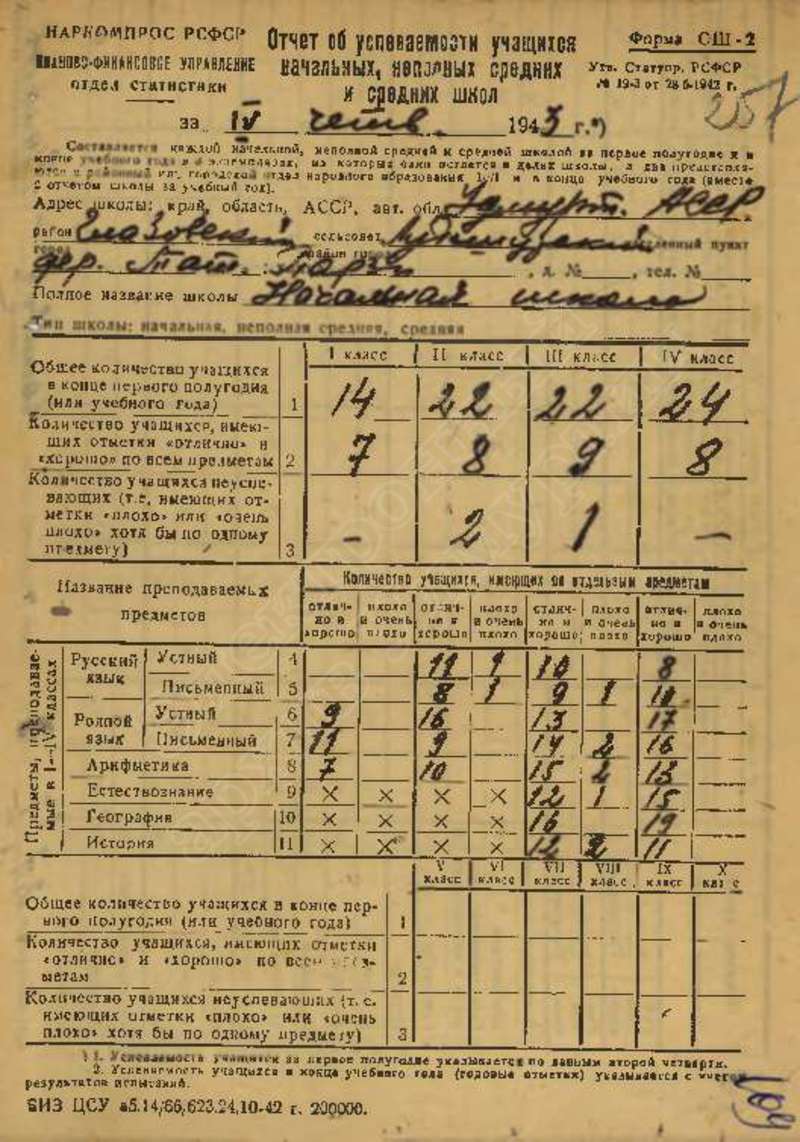 НАРКОМПРОС РСФСР
ПЛАНОВО-ФИНАНСОВОЕ УПРАВЛЕНИЕ
ОТДЕЛ СТАТИСТИКИ
Отчет об успеваемости учащихся
начальных, неполных средних
и средних школ
Форма СШ-2
Утв. Статупр. РСФСР
№ 19-3 от 28 6-1942 г.
257
за IV четв. 1943 г.*)
Составляется каждой начальной, неполной средней и средней школой за первое полугодие и в
конце учебного года в 3 экземплярах, из которых один остается в делах школы, а два представля-
с отчетом школы за учебный год).
Адрес школы: край, область, АССР, авт. обл. Удмурт. АССР
район сельсовет населенный пункт
дер. , д. № , тел. №
Полное название школы Начальная школа
Тип школы: начальная, неполная средняя, средняя
I класс II класс III класс IV класс
Общее количество учащихся
в конце первого полугодия
(или учебного года) 1 14 22 22 24
Количество учащихся, имею-
щих отметки «отлично» и
«хорошо» по всем предметам 2 7 8 9 8
Количество учащихся неуспе-
вающих (т.е. имеющих от-
метки «плохо» или «очень
плохо» хотя бы по одному
предмету) 3 - 2 1 -
Название преподаваемых
предметов
Количество учащихся, имеющих по отдельным предметам
отлич- плохо отлич- плохо отлич- плохо отлич- плохо
но и и очень но и и очень но и и очень но и и очень
хорошо плохо хорошо плохо хорошо плохо хорошо плохо
Предметы, преподавае-
мые в I—IV классах
Русский язык Устный 4 11 1 10 8
Письменный 5 8 1 9 1 10
Родной язык Устный 6 9 16 13 17
Письменный 7 11 9 14 2 16
Арифметика 8 7 10 15 2 13
Естествознание 9 × × × × 12 1 15
География 10 × × × × 16 19
История 11 × × × × 12 2 11
V класс VI класс VII класс VIII класс IX класс X класс
Общее количество учащихся в конце пер-
вого полугодия (или учебного года) 1
Количество учащихся, имеющих отметки
«отлично» и «хорошо» по всем пред-
метам 2
Количество учащихся неуспевающих (т. е.
имеющих отметки «плохо» или «очень
плохо» хотя бы по одному предмету) 3
*) 1. Успеваемость учащихся за первое полугодие указывается по данным второй четверти.
2. Успеваемость учащихся в конце учебного года (годовые отметки) указывается с учетом
результатов испытаний.
БИЗ ЦСУ 45.14/66,623.24.10-42 г. 200000.